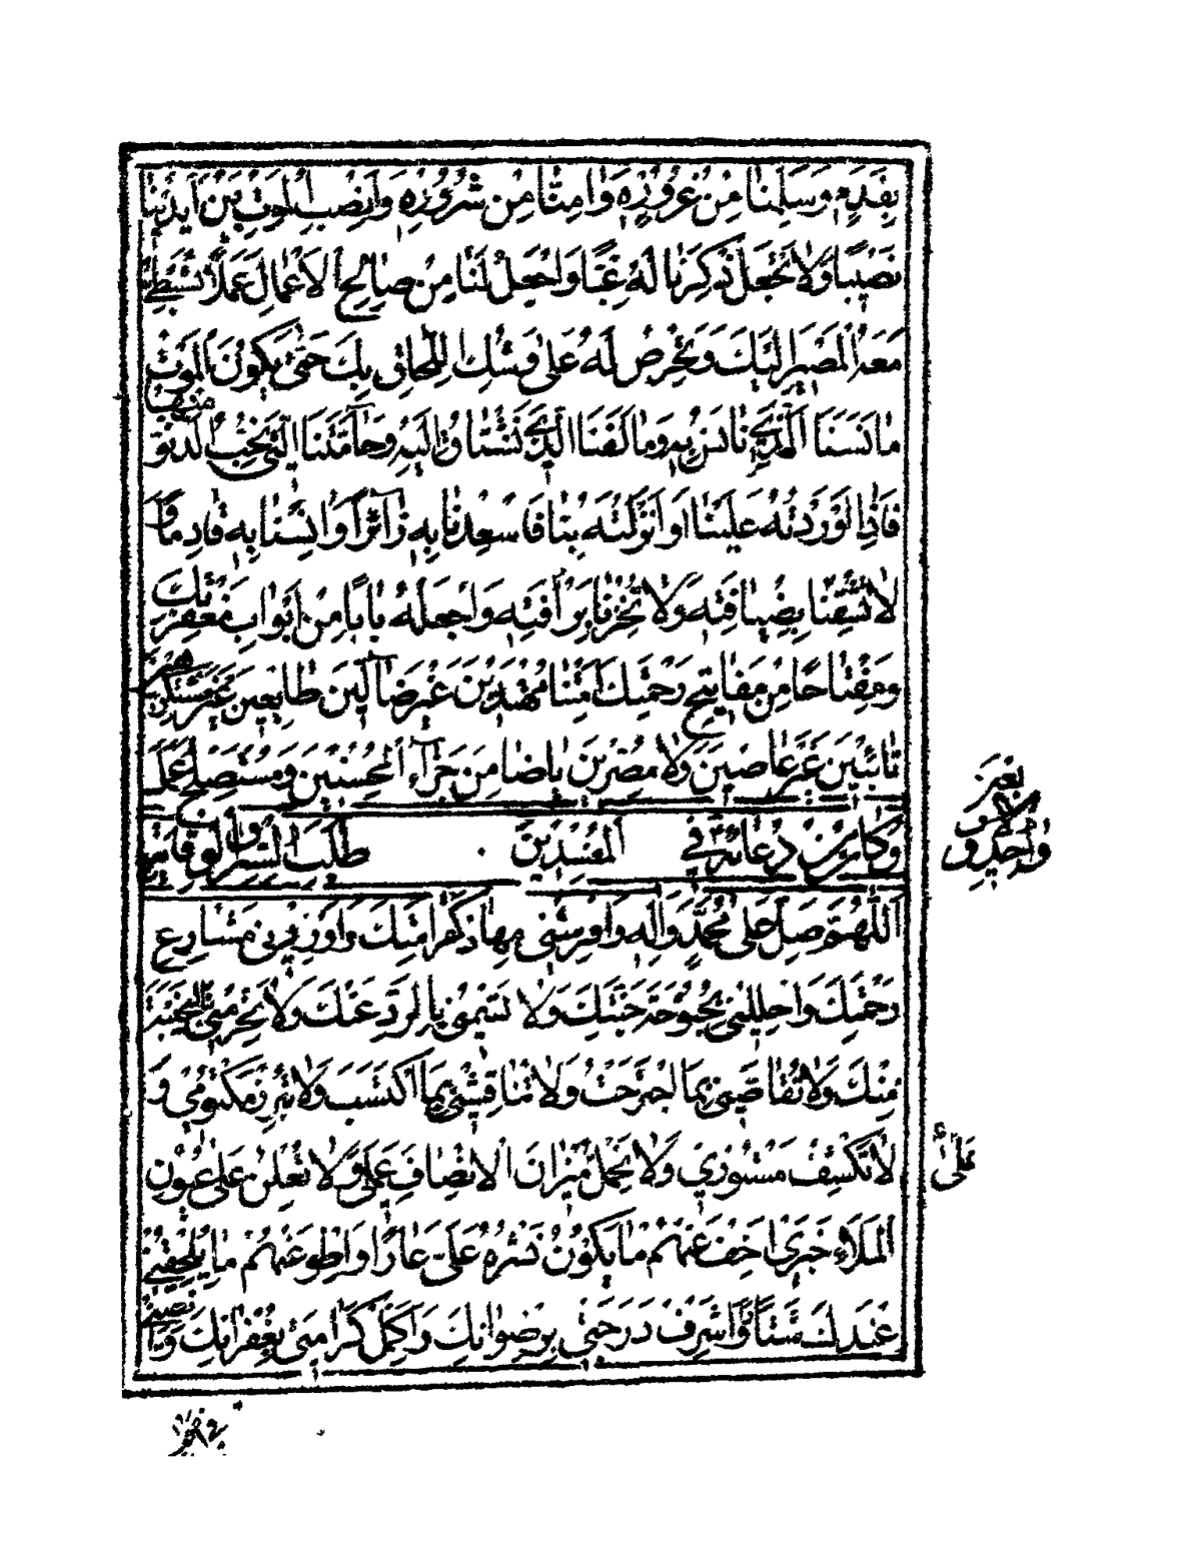 بِقَدَمٍ وَسَلِّمْنَا مِنْ غُرُورِهِ وَاٰمِنَّا مِنْ شُرُورِهِ وَانْصِبِ الْمَوْتَ بَيْنَ اَيْدِينَا
نَصْبًا وَلَا تَجْعَلْ ذِكْرَنَا لَهُ غِبًّا وَاجْعَلْ لَنَا مِنْ صَالِحِ الْاَعْمَالِ عَمَلًا نَسْتَبْطِئُ
مَعَهُ الْمَصِيرَ اِلَيْكَ وَنَحْرِصُ لَهُ عَلَى وَشْكِ اللِّحَاقِ بِكَ حَتَّى يَكُونَ الْمَوْتُ
مَاْنَسَنَا الَّذِي نَاْنَسُ بِهِ وَمَاْلَفَنَا الَّذِي نَشْتَاقُ اِلَيْهِ وَحَامَّتَنَا الَّتِي نُحِبُّ الدُّنُوَّ مِنْهَا
فَاِذَا اَوْرَدْتَهُ عَلَيْنَا اَوْ اَنْزَلْتَهُ بِنَا فَاَسْعِدْنَا بِهِ زَائِرًا وَاٰنِسْنَا بِهِ قَادِمًا وَ
لَا تُشْقِنَا بِضِيَافَتِهِ وَلَا تُخْزِنَا بِزِيَارَتِهِ وَاجْعَلْهُ بَابًا مِنْ اَبْوَابِ مَغْفِرَتِكَ
وَمِفْتَاحًا مِنْ مَفَاتِيحِ رَحْمَتِكَ اَمِتْنَا مُهْتَدِينَ غَيْرَ ضَالِّينَ طَائِعِينَ غَيْرَ مُسْتَكْرِهِينَ
تَائِبِينَ غَيْرَ عَاصِينَ وَلَا مُصِرِّينَ يَا ضَامِنَ جَزَاءِ الْمُحْسِنِينَ وَمُسْتَصْلِحَ عَمَلِ
الْمُفْسِدِينَ
وَكَانَ مِنْ دُعَائِهِ فِي طَلَبِ السَّتْرِ وَالْوِقَايَةِ
اَللّٰهُمَّ صَلِّ عَلَى مُحَمَّدٍ وَاٰلِهِ وَافْرِشْنِي مِهَادَ كَرَامَتِكَ وَاَوْرِدْنِي مَشَارِعَ
رَحْمَتِكَ وَاَحْلِلْنِي بُحْبُوحَةَ جَنَّتِكَ وَلَا تَسُمْنِي بِالرَّدِّ عَنْكَ وَلَا تَحْرِمْنِي بِالْخَيْبَةِ
مِنْكَ وَلَا تُقَاصَّنِي بِمَا اجْتَرَحْتُ وَلَا تُنَاقِشْنِي بِمَا اكْتَسَبْتُ وَلَا تُبْرِزْ مَكْتُومِي وَ
لَا تَكْشِفْ مَسْتُورِي وَلَا تَحْمِلْ عَلَى مِيزَانِ الْاِنْصَافِ عَمَلِي وَلَا تُعْلِنْ عَلَى عُيُونِ
الْمَلَاِ خَبَرِي اَخْفِ عَنْهُمْ مَا يَكُونُ نَشْرُهُ عَلَيَّ عَارًا وَاطْوِ عَنْهُمْ مَا يُلْحِقُنِي
عِنْدَكَ شَنَارًا شَرِّفْ دَرَجَتِي بِرِضْوَانِكَ وَاَكْمِلْ كَرَامَتِي بِغُفْرَانِكَ وَانْظِمْنِي